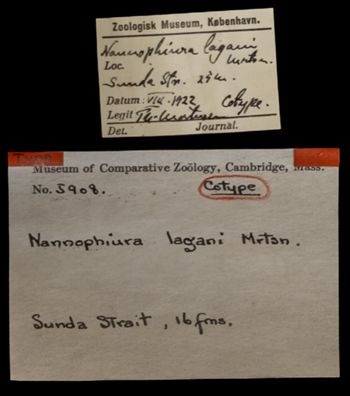 Zoologisk Museum, København.
Nannophiura lagani
Loc. Mrtsn.
Sunda Str. 25 m.
Datum: VIII. 1922 Cotype.
Legit Th. Mortensen
Det. Journal.
Type
Museum of Comparative Zoölogy, Cambridge, Mass.
No. 5908. Cotype
Nannophiura lagani Mrtsn.
Sunda Strait, 16 fms.